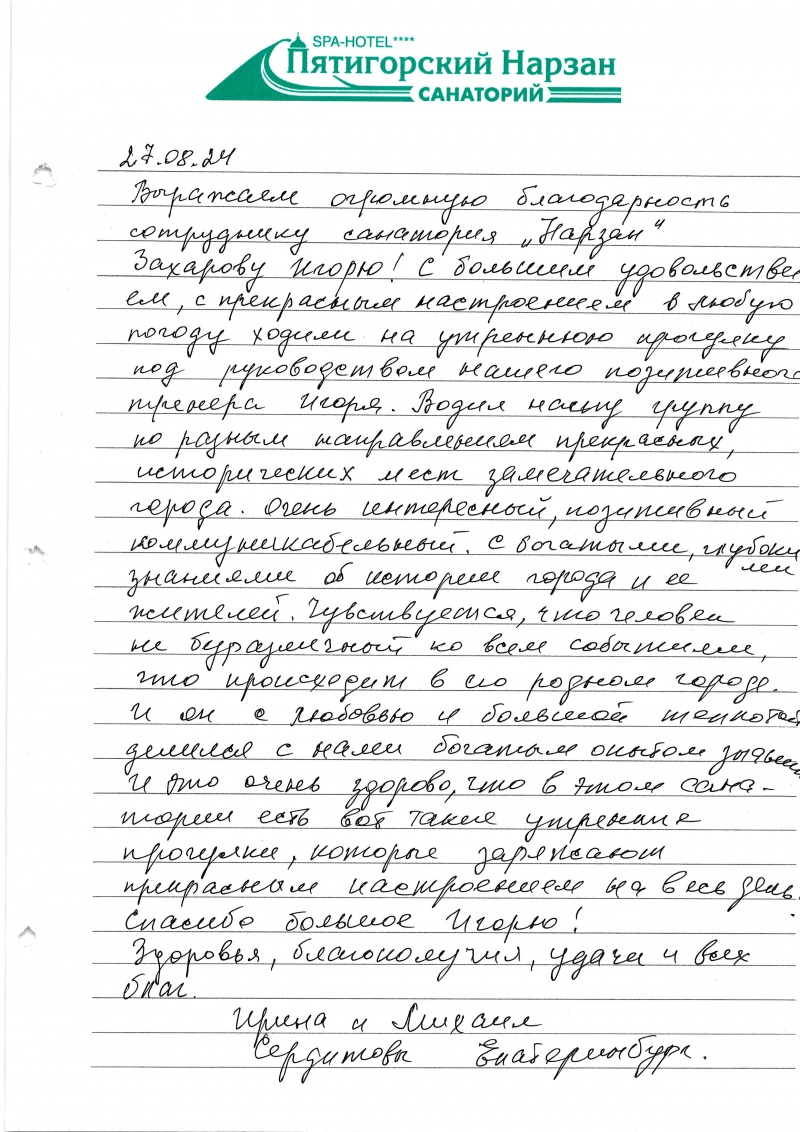 SPA-HOTEL****
Пятигорский Нарзан
САНАТОРИЙ
27.08.24
Выражаем огромную благодарность
сотруднику санатория „Нарзан“
Захарову Игорю! С большим удовольстви
ем, с прекрасным настроением в любую
погоду ходили на утреннюю прогулку
под руководством нашего позитивного
тренера Игоря. Водил нашу группу
по разным направлением прекрасных,
исторических мест замечательного
города. Очень интересный, позитивный
коммуникабельный. С богатыми, глубоки
знаниями об истории города и ее ми
жителей. Чувствуется, что человек
не буразличный ко всем событиям,
что происходит в его родном городе.
И он с любовью и большой теплотой
делился с нами богатым опытом
И это очень здорово, что в этом сана-
тории есть вот такие утрение
прогулки, которые заряжают
прекрасным настроением на весь день.
Спасибо большое Игорю!
Здоровья, благополучия, удачи и всех
благ.
Ирина и Михаил
Сердитовы Екатеринбург.